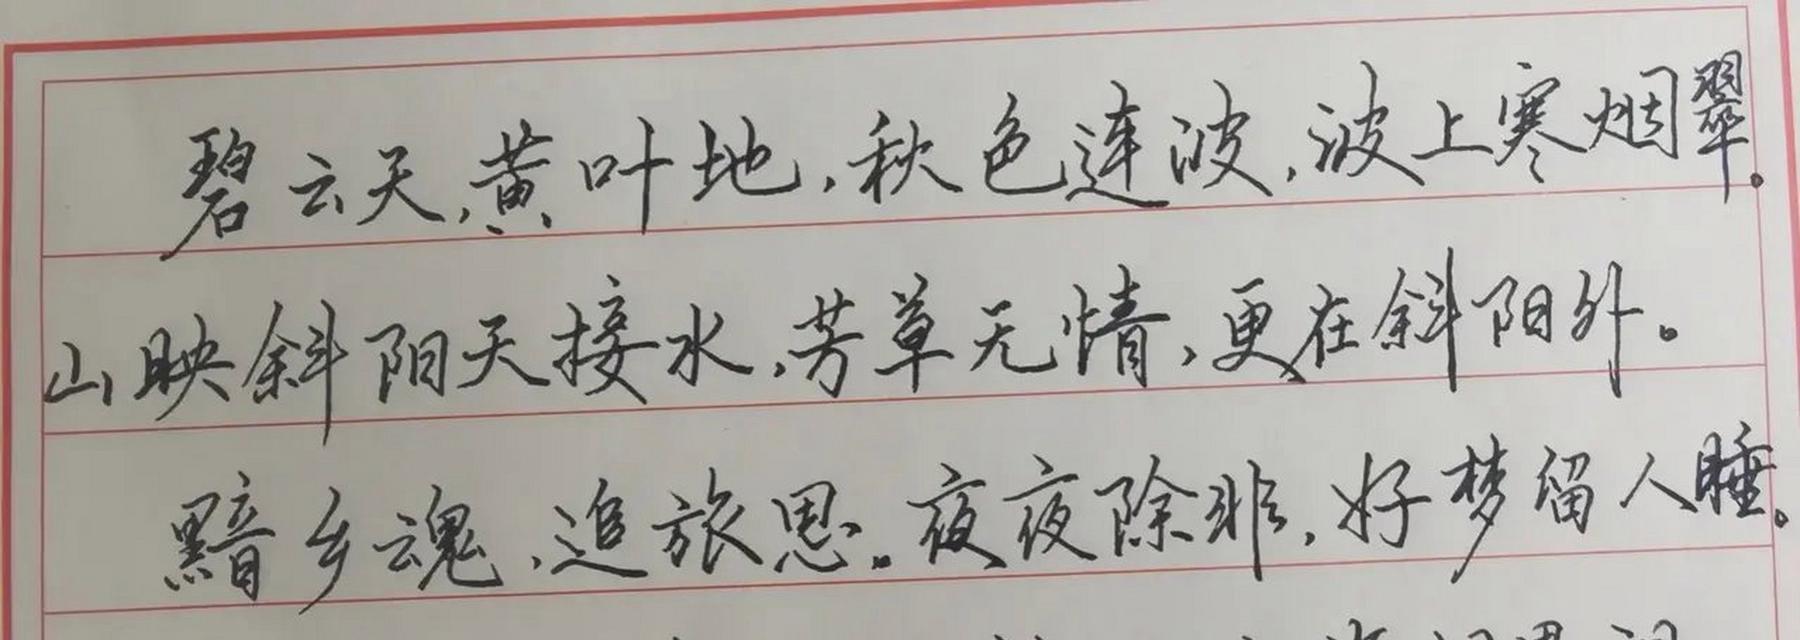 碧云天,黄叶地,秋色连波,波上寒烟翠。
山映斜阳天接水,芳草无情,更在斜阳外。
黯乡魂,追旅思。夜夜除非,好梦留人睡。